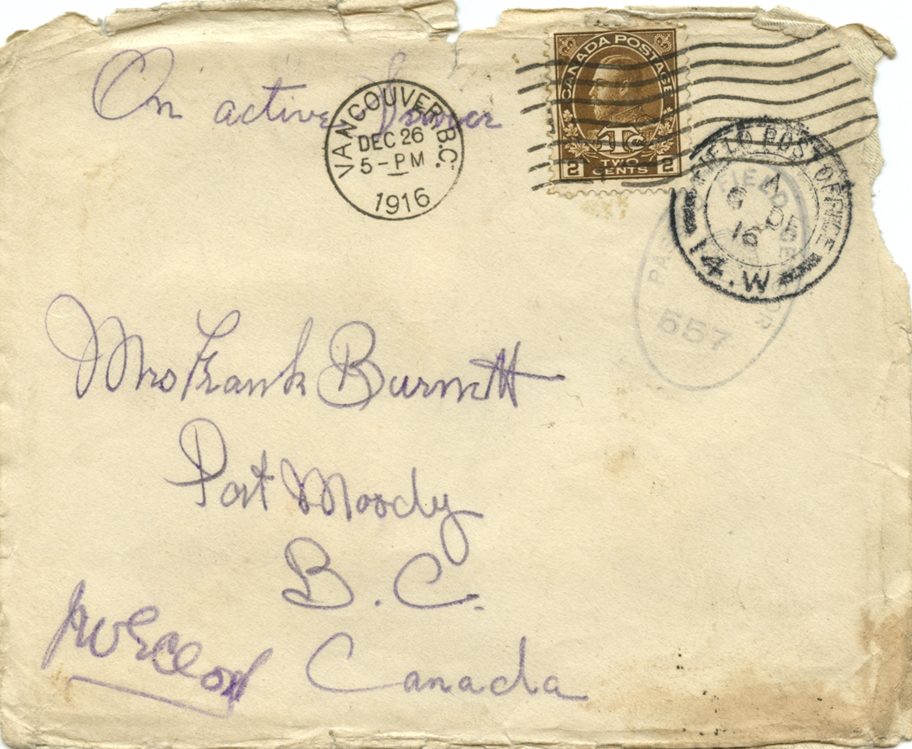 On active Service
VANCOUVER, B.C.
DEC 26
5 - PM
1916
CANADA POSTAGE
1Tc
2 TWO CENTS 2
FIELD POST OFFICE
A
DE
16
14.W
PAS FIELD CENSOR
557
Mrs Frank Burnett
Port Moody
B. C.
Canada